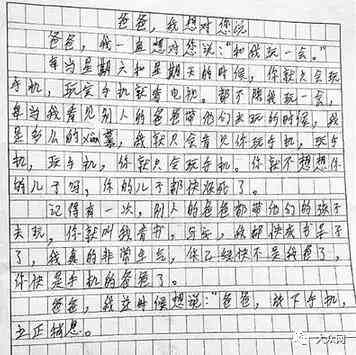 爸爸,我想对您说
爸爸,我一直想对您说:“和我玩一会。”
每当星期六和星期天的时候,你就只会玩
手机,玩完手机就看电视。都不陪我玩一会,
每当我看见别人的爸爸带他们去玩的时候,我
是多么的xian慕,我就只会看见你玩手机,玩手
机,玩手机,你就只会玩手机。你就不想想你
的儿子吗,你的儿子都快疯了。
记得有一次,别人的爸爸都带他们的孩子
去玩,你就叫我看书,写字,我都快成书呆子
了,我真的非常生气,你已经快不是我爸了,
你快是手机的爸爸了。
爸爸,我这时候想说:“爸爸,放下手机,
立正稍息。
大众网